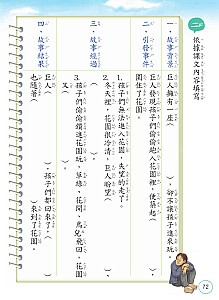 二 依據課文內容填寫
一、故事背景
巨人擁有一座( )，卻不讓孩子進來玩。
二、引發事件
巨人發現孩子們偷偷跑入花園裡，便築起( )圍住了花園。
三、故事經過
1. 孩子們無法進入花園，失望的走了。
2. 冬天裡，花園很冷清，巨人盼望( )
3. 孩子們偷偷鑽進花園玩，草綠、花開、鳥兒飛回，花園又( )
四、故事結果
巨人( )，孩子們都回來了，( )也隨著( )來到了花園。
72